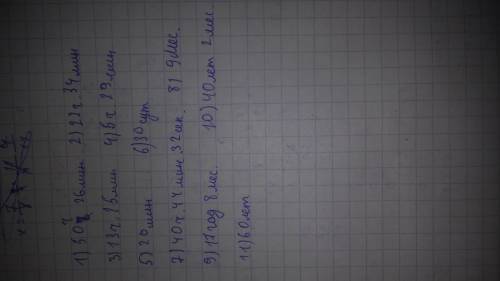 1) 60ч 26мин 2) 22ч. 34мин
3) 13ч. 25мин 4) 6ч. 29мин
5) 20мин 6) 30сут
7) 40ч. 44мин 32сек. 8) 9мес.
9) 17год 8мес. 10) 40лет 2мес
11) 60лет